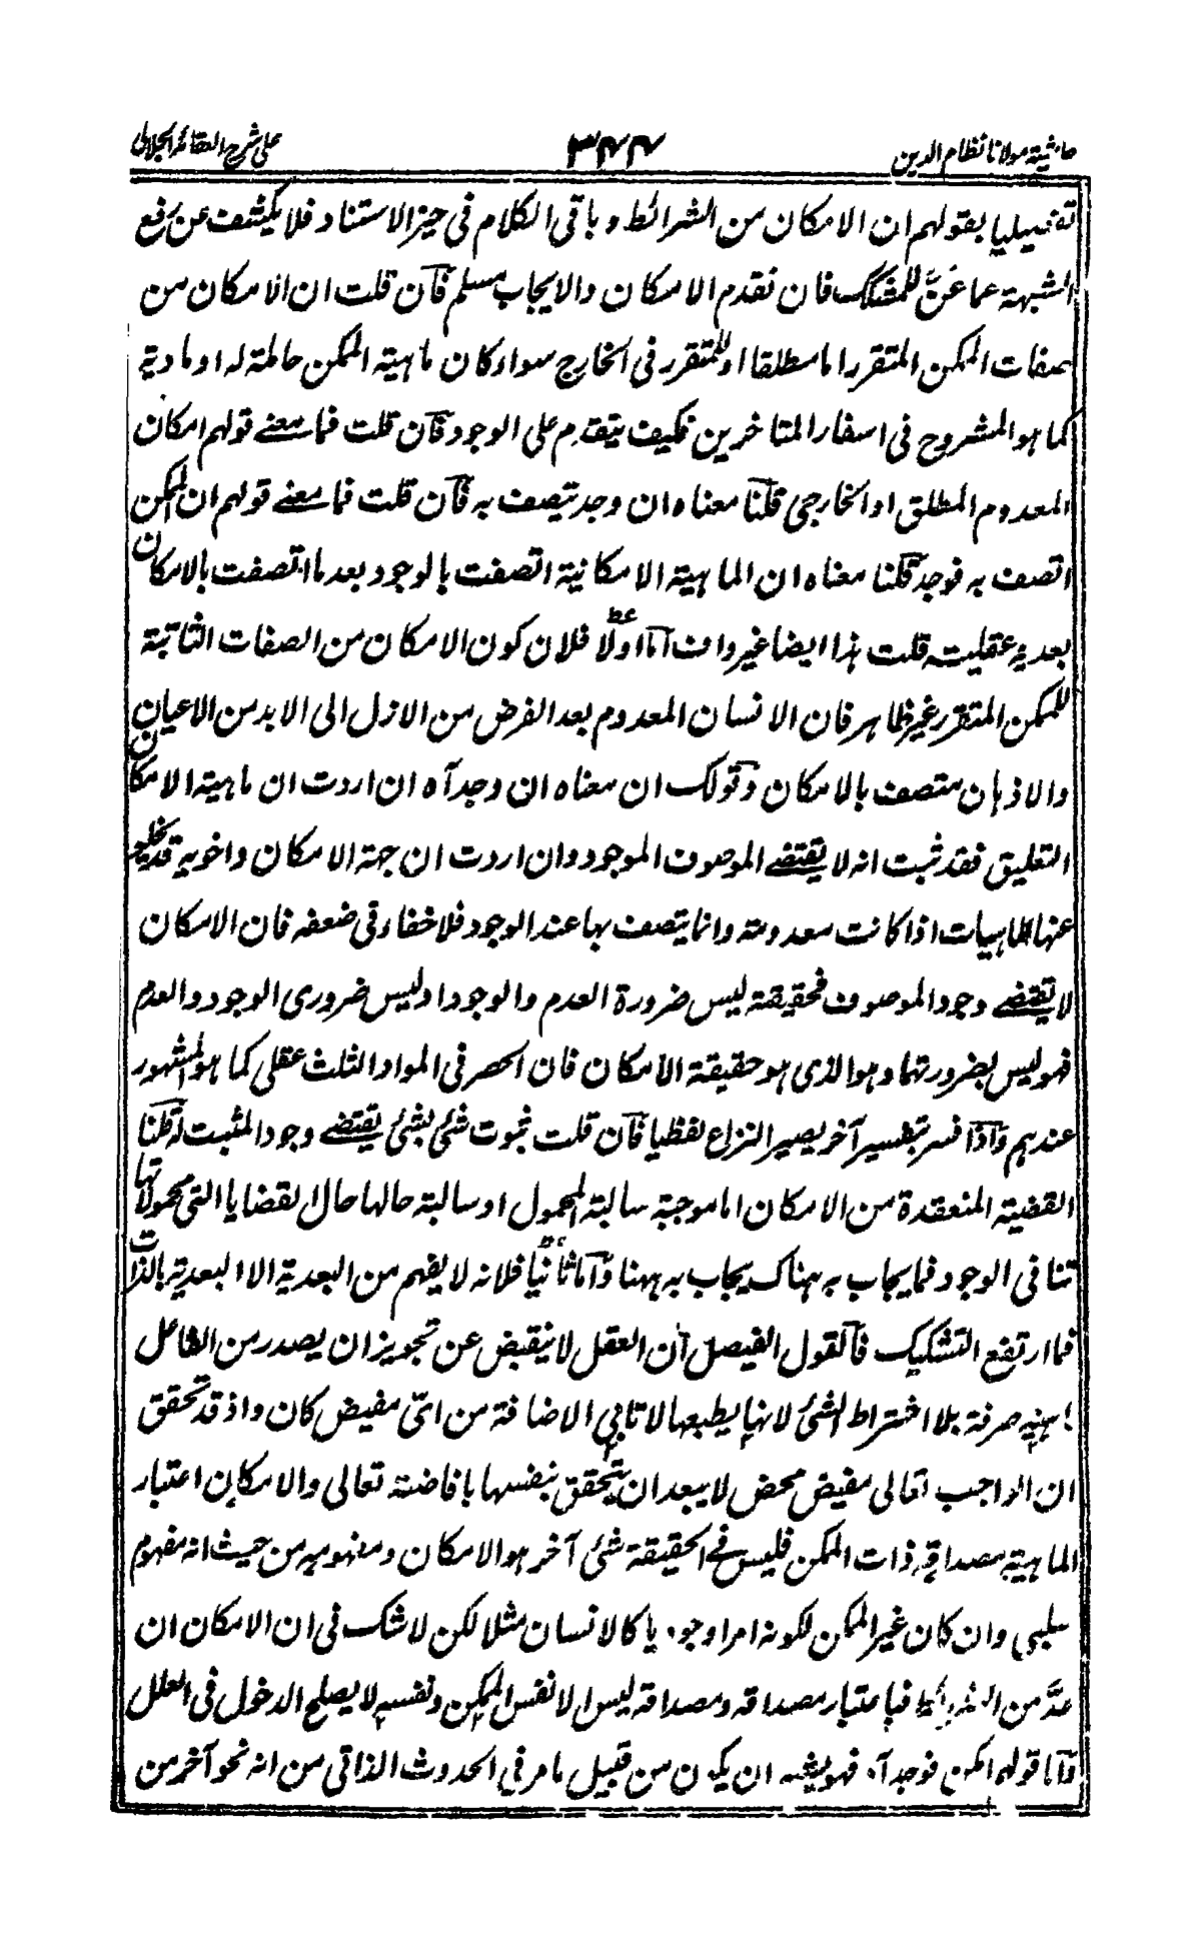 حاشية مولانا نظام الدين ٣٤٤ على شرح العقائد الجلالي
تفصيليا بقولهم ان الامكان من الشرائط وباقي الكلام في حيز الاستناد فلا يكشف عن رفع
الشبهة عما عَنَّ للمشكك فان تقدم الامكان والايجاب مسلم فان قلت ان الامكان من
صفات الممكن المتقرر اما مطلقا او للمتقرر في الخارج سواء كان ماهية الممكن حاملة له او مادية
كما هو المشروح في اسفار المتاخرين فكيف يتقدم على الوجود فان قلت فما معنے قولهم امكان
المعدوم المطلق او الخارجي قلنا معناه ان وجد يتصف به فان قلت فما معنے قولهم ان الممكن
اتصف به فوجد قلنا معناه ان الماهية الامكانية اتصفت بالوجود بعد ما اتصفت بالامكان
بعدية عقلية قلت هذا ايضا غير واف اما اولا فلان كون الامكان من الصفات الثابتة
للممكن المتقرر غير ظاهر فان الانسان المعدوم بعد الفرض من الازل الى الابد من الاعيان
والاذهان متصف بالامكان وقولك ان معناه ان وجد آه ان اردت ان ماهية الامكان
التعليق فقد ثبت انه لا يقتضے الموصوف الموجود وان اردت ان جهة الامكان واخويه قد يخلو
عنها الماهيات اذا كانت معدومة وانما يتصف بها عند الوجود فلا خفاء في ضعفه فان الامكان
لا يقتضے وجود الموصوف فحقيقته ليس ضرورة العدم والوجود اذ ليس ضروري الوجود والعدم
فهو ليس بضرورتهما وهو الذي هو حقيقة الامكان فان الحصر في المواد الثلث عقلي كما هو المشهور
عندهم واذا فسر بتفسير آخر يصير النزاع لفظيا فان قلت ثبوت شئ بشئ يقتضے وجود المثبت له قلنا
القضية المنعقدة من الامكان اما موجبة سالبة المحمول او سالبة حالها حال القضايا التي محمولاتها
تنافي الوجود فما يجاب به هناك يجاب به ههنا واما ثانيا فلانه لا يفهم من البعدية الا البعدية بالذات
فما ارتفع التشكيك فالقول الفيصل ان العقل لا ينقبض عن تجويز ان يصدر من الفاعل
ماهية صرفة بلا اشتراط الشئ لانها بطبعها لا تابى الاضافة من اىّ مفيض كان واذ قد تحقق
ان الواجب تعالى مفيض محض لا يبعد ان يتحقق بنفسها بافاضته تعالى والامكان اعتبار
الماهية مصداقه ذات الممكن فليس في الحقيقة شئ آخر هو الامكان ومفهومه من حيث انه مفهوم
سلبي وان كان غير الممكن لكونه امرا وجوديا كالانسان مثلا لكن لا شك في ان الامكان ان
عدّ من الشرائط فباعتبار مصداقه ومصداقه ليس الا نفس الممكن ونفسه لا يصلح الدخول في العلل
واما قولهم امكن فوجد آه فهو يشبه ان يكون من قبيل ما مر في الحدوث الذاتي من انه نحو آخر من